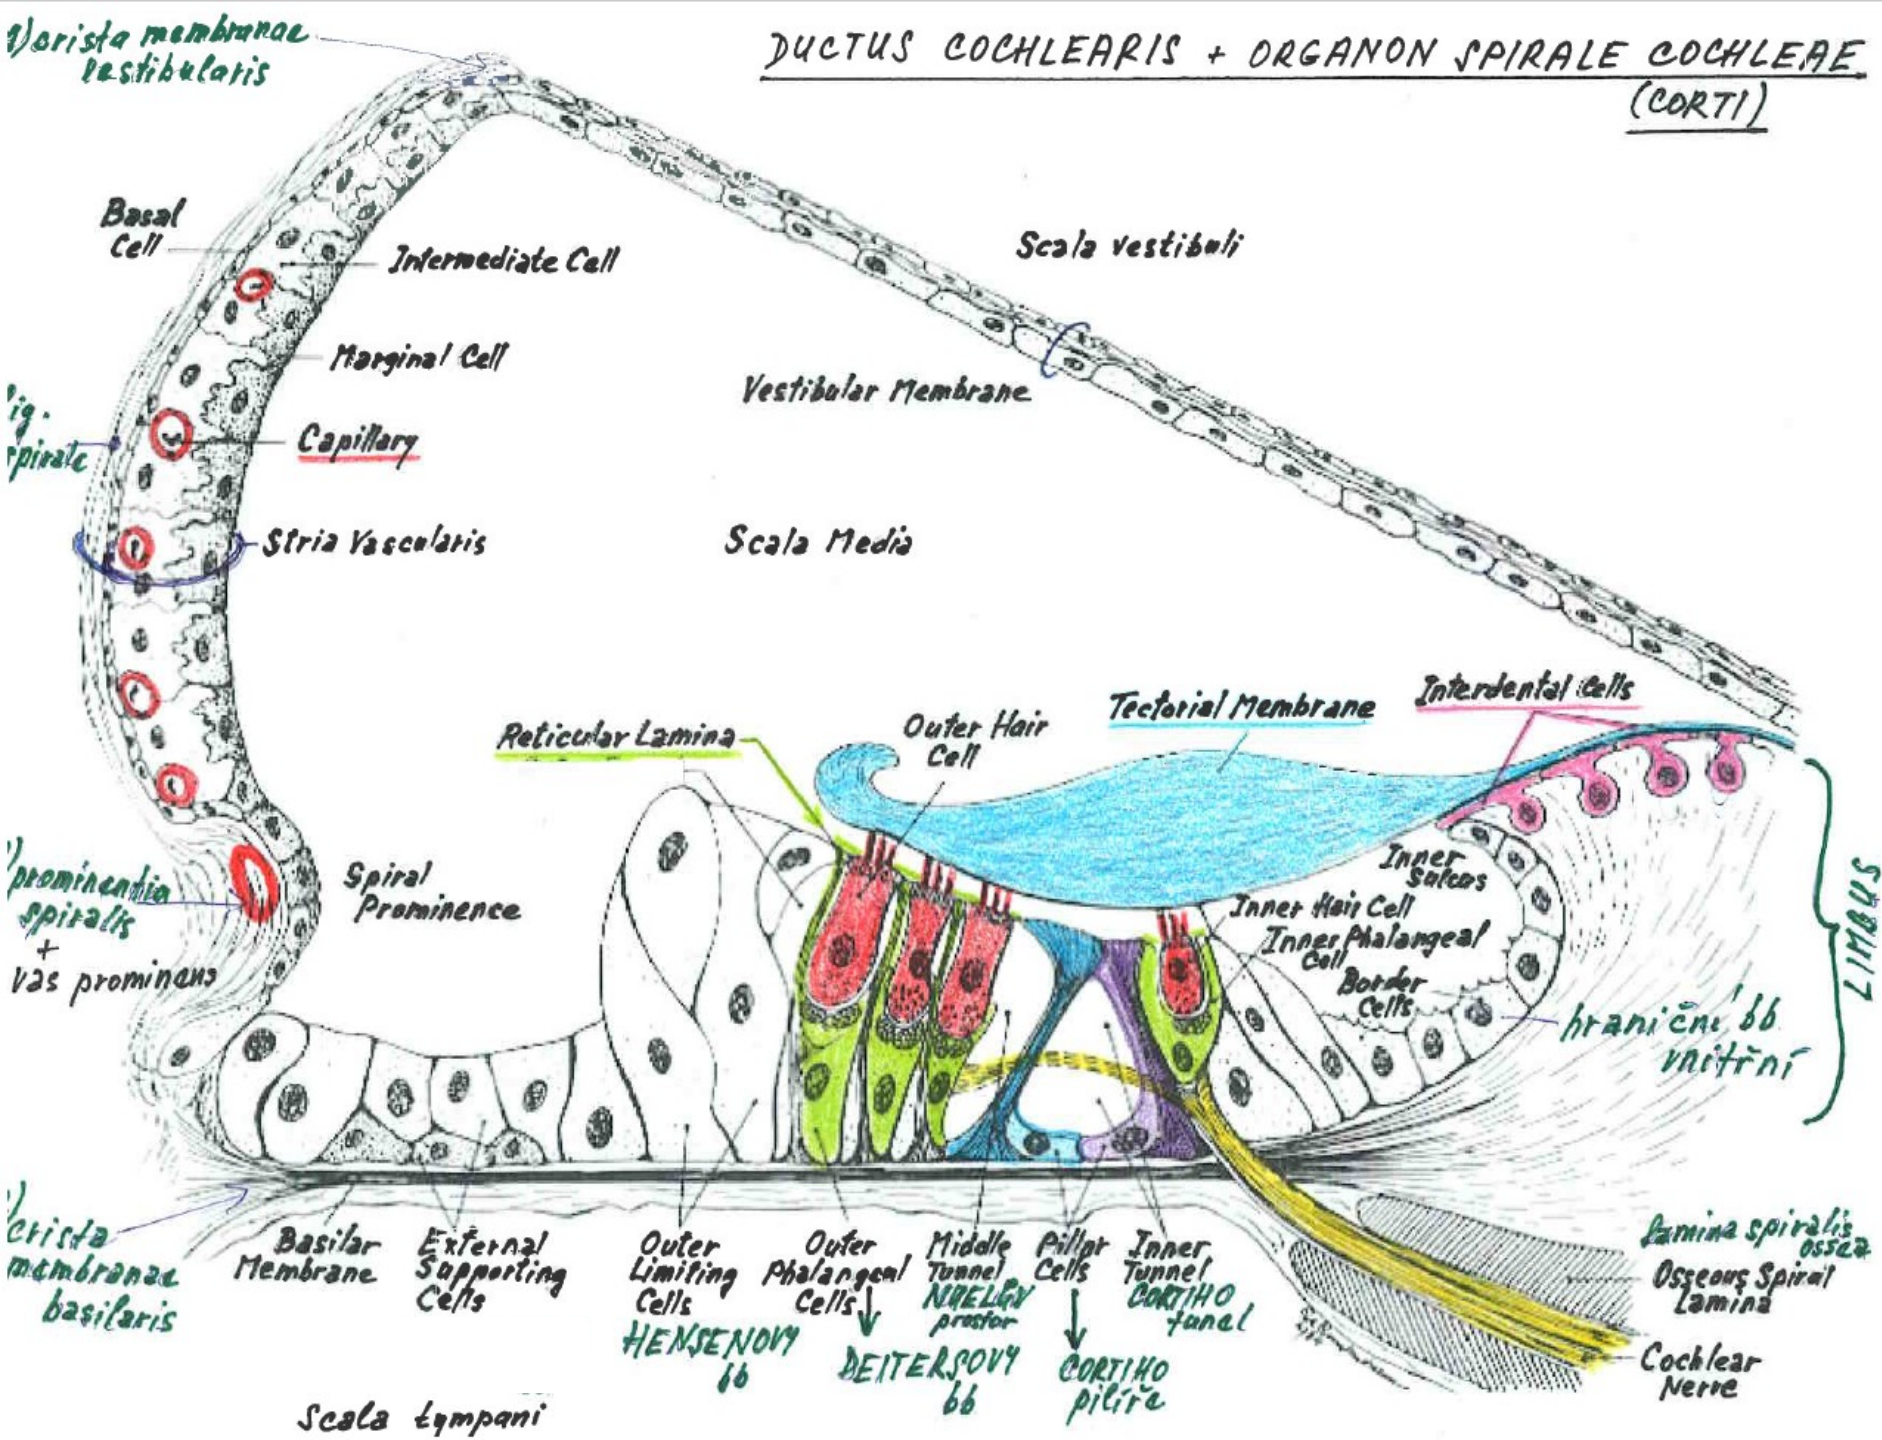 DUCTUS COCHLEARIS + ORGANON SPIRALE COCHLEAE
(CORTI)
crista membranae
vestibularis
Basal
Cell
Intermediate Cell
Scala vestibuli
Marginal Cell
Vestibular Membrane
lig.
spirale
Capillary
Stria Vascularis
Scala Media
Reticular Lamina
Outer Hair
Cell
Tectorial Membrane
Interdental Cells
prominentia
spiralis
+
vas prominens
Spiral
Prominence
Inner
Sulcus
Inner Hair Cell
Inner Phalangeal
Cell
Border
Cells
hraniční bb
vnitřní
LIMBUS
crista
membranae
basilaris
Basilar
Membrane
External
Supporting
Cells
Outer
Limiting
Cells
HENSENOVY
bb
Outer
Phalangeal
Cells
DEITERSOVY
bb
Middle
Tunnel
NUELŮV
prostor
Pillar
Cells
CORTIHO
pilíře
Inner
Tunnel
CORTIHO
tunel
Lamina spiralis
ossea
Osseous Spiral
Lamina
Cochlear
Nerve
Scala tympani